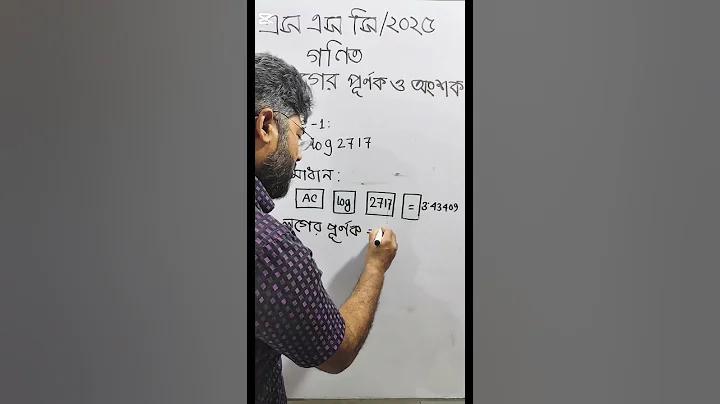 এস এস সি/২০২৫
গণিত
পূর্ণক ও অংশক
-1:
log 2717
AC log 2717 = 3.43409
লগের পূর্ণক =